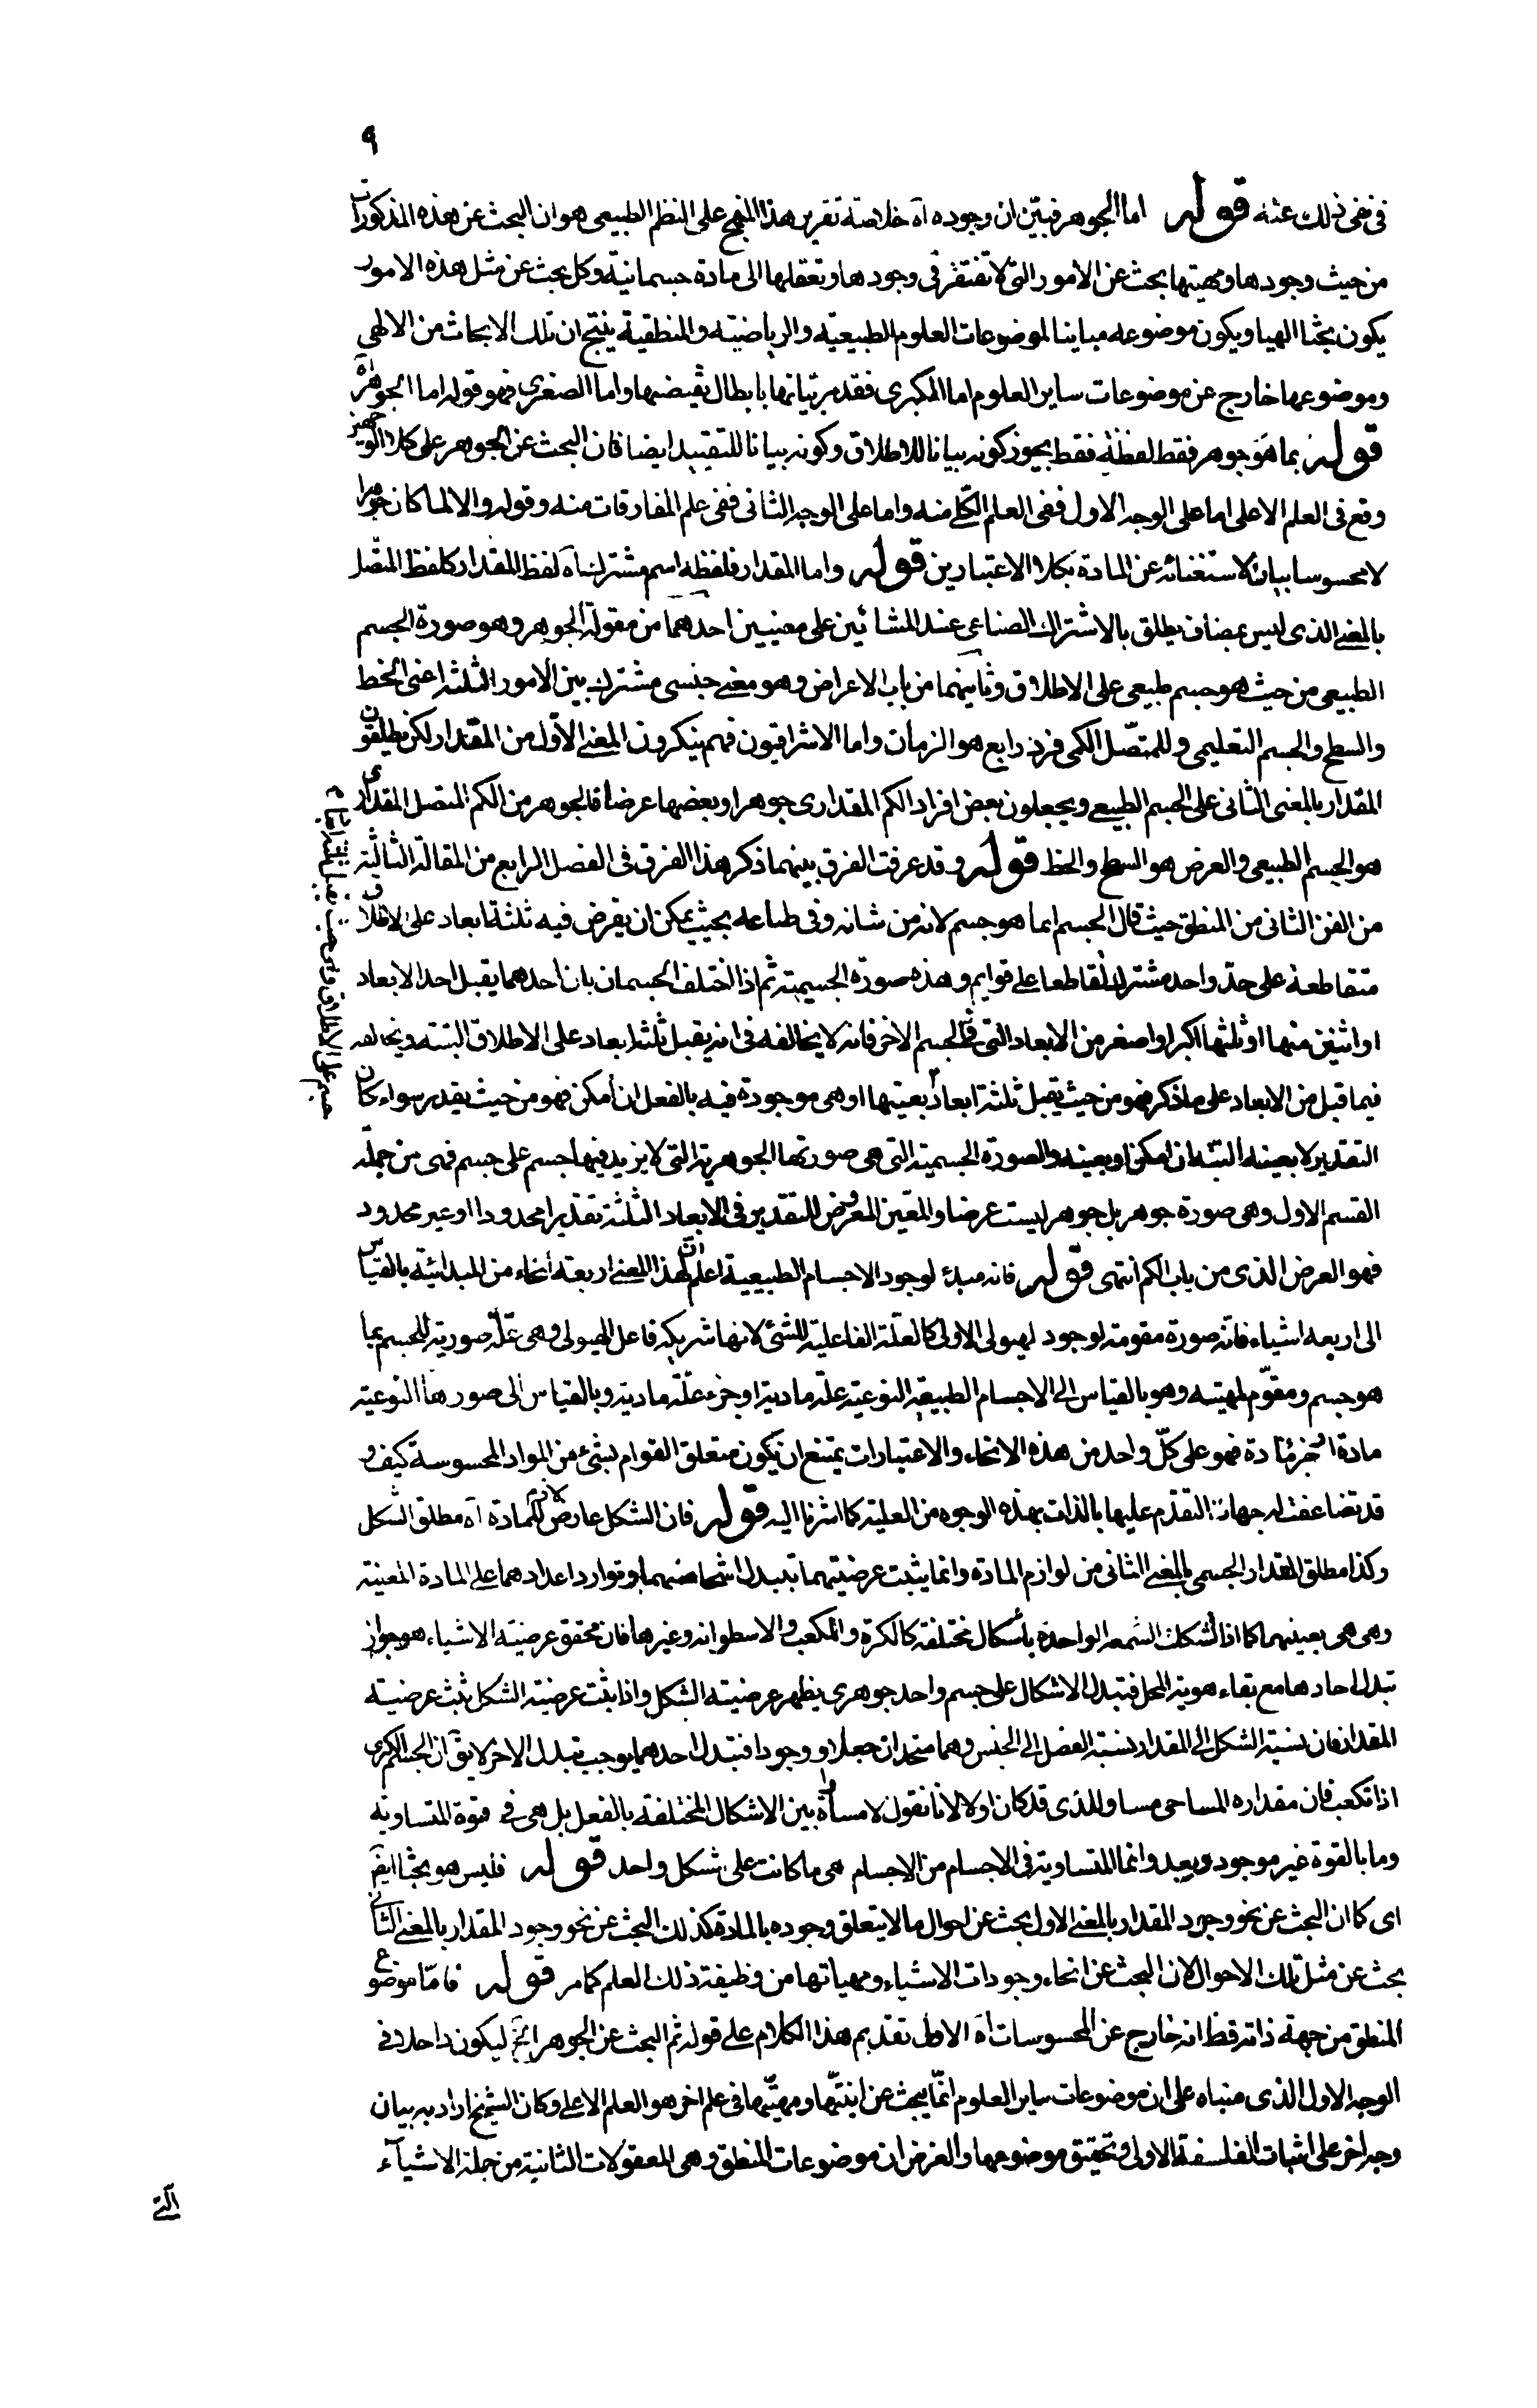 ٩
فى نفى ذلك عنه قوله اما الجوهر فبيّن ان وجوده آه خلاصة تقرير هذا المنهج على النظم الطبيعى هو ان البحث عن هذه المذكورات
من حيث وجودها ومهيتها بحث عن الأمور التى لا تفتقر فى وجودها وتعقلها الى مادة جسمانية وكل بحث عن مثل هذه الامور
يكون بحثا الهيا ويكون موضوعه مباينا لموضوعات العلوم الطبيعيّة والرياضيّة والمنطقية ينتج ان تلك الابحاث من الالهى
وموضوعها خارج عن موضوعات ساير العلوم اما الكبرى فقد مر بيانها بابطال نقيضها واما الصغرى فهو قوله اما الجوهر آه
قوله بما هو جوهر فقط لفظة فقط يجوز كونه بيانا للاطلاق وكونه بيانا للتقييد ايضا فان البحث عن الجوهر على كلا الوجهين
وقع فى العلم الاعلى اما على الوجه الاول ففى العلم الكلّى منه واما على الوجه الثانى ففى علم المفارقات منه وقوله والا لما كان جوهرا
لا محسوسا بيان لاستغنائه عن المادة بكلا الاعتبارين قوله واما المقدار فلفظه اسم مشترك آه لفظ المقدار كلفظ المتّصل
بالمعنى الذى ليس بمضاف يطلق بالاشتراك الصناعى عند المشائين على معنيين احدهما من مقولة الجوهر وهو صورة الجسم
الطبيعى من حيث هو جسم طبيعى على الاطلاق وثانيهما من باب الاعراض وهو معنى جنسى مشترك بين الأمور الثلثة اعنى الخط
والسطح والجسم التعليمى وللمتصّل الكمى فرد رابع هو الزمان واما الاشراقيون فهم ينكرون المعنى الاوّل من المقدار لكن يطلقون
المقدار بالمعنى الثانى على الجسم الطبيعى ويجعلون بعض افراد الكم المقدارى جوهرا وبعضها عرضا فالجوهر من الكم المتصل المقدارى
هو الجسم الطبيعى والعرض هو السطح والخط قوله وقد عرفت الفرق بينهما ذكر هذا الفرق فى الفصل الرابع من المقالة الثالثة
من الفن الثانى من المنطق حيث قال الجسم انما هو جسم لانه من شانه وفى طباعه بحيث يمكن ان يفرض فيه ثلثة ابعاد على الاطلاق
متقاطعة على حدّ واحد مشترك تقاطعا على قوايم وهذه صورة الجسمية ثم اذا اختلف الجسمان بان احدهما يقبل احد الابعاد
او اثنين منها او ثلثها اكبر او اصغر من الابعاد التى فى الجسم الاخر فانه لا يخالفه فى انه يقبل ثلثة ابعاد على الاطلاق البتة ويخالفه
فيما قبل من الابعاد على ما ذكر فهو من حيث يقبل ثلثة ابعاد بعينها او هى موجودة فيه بالفعل ان أمكن فهو من حيث يقدر سواء كان
التقدير لا بعينه البتّة ان امكن او بعينه والصورة الجسمية التى هى صورتها الجوهرية التى لا يزيد فيها جسم على جسم فهى من جملة
القسم الاول وهى صورة جوهر بل جوهر ليست عرضا والمعّين المعروض للتقدير فى الابعاد الثلثة تقديرا محدودا او غير محدود
فهو العرض الذى من باب الكم انتهى قوله فانه مبدء لوجود الاجسام الطبيعية اعلم ان لهذا المعنى اربعة أنحاء من المبدائيّة بالقياس
الى اربعه اشياء فانّه صورة مقومة لوجود الهيولى الاولى كالعلّة الفاعليّة للشئ لانها شريكة فاعل الهيولى وهى علّة صورية للجسم بما
هو جسم ومقوّم لمهيته وهو بالقياس الى الاجسام الطبيعية النوعيّة علة مادية او جزء علّة مادية وبالقياس الى صورها النوعية
مادة او جزء مادة فهو على كلّ واحد من هذه الانحاء والاعتبارات يمتنع ان يكون متعلق القوام بشئ من المواد المحسوسة كيف و
قد تضاعفت له جهات التقدّم عليها بالذات بهذه الوجوه من العلية كما اشرنا اليه قوله فان الشكل عارض لازم للمادة آه مطلق الشكل
وكذا مطلق المقدار الجسمى بالمعنى الثانى من لوازم المادة وانما يثبت عرضيتهما تبدل اشخاصهما وتوارد اعدادهما على المادة المعينة
وهى هى بعينهما كما اذا لشكلت الشمعة الواحدة بأشكال مختلفة كالكرة والمكعب والاسطوانة وغيرها فان محقق عرضيّة الاشياء هو جواز
تبدل احادها مع بقاء هوية المحل فتبدل الاشكال على جسم واحد جوهرى يظهر عرضيته الشكل واذا ثبتت عرضيته الشكل يثبت عرضيته
المقدار فان نسبة الشكل الى المقدار نسبة الفصل الى الجنس وهما متحدان جعلا ووجودا فتبدل احدهما يوجب تبدل الاخر لا يق آن الجسم الكرى
اذا تكعب فان مقداره المساحى مساو للذى قد كان اولا لانا نقول لا مساواة بين الاشكال المختلفة بالفعل بل هى فى قوة المتساوية
وما بالقوة غير موجود وبعد وانما المتساوية فى الاجسام من الاجسام هى ما كانت على شكل واحد قوله فليس هو بحثا ايضَ
اى كما ان البحث عن نحو وجود المقدار بالمعنى الاول بحث عن احوال ما لا يتعلق وجوده بالمادة كذلك البحث عن نحو وجود المقدار بالمعنى الثانى
بحث عن مثل تلك الاحوال لان البحث عن انحاء وجودات الاشياء ومهياتها من وظيفة ذلك العلم كما مر قوله فامّا موضوع
المنطق من جهة ذاته فظ انه خارج عن المحسوسات آه الاولى تقديم هذا الكلام على قوله ثم البحث عن الجوهر الخ ليكون داخلا فى
الوجه الاول الذى مبناه على ان موضوعات ساير العلوم انّما يبحث عن انيّتها ومهيّتها فى علم اخر هو العلم الاعلى وكان الشيخ اراد به بيان
وجه اخر على اثبات الفلسفة الاولى وتحقيق موضوعها والغرض ان موضوعات المنطق وهى المعقولات الثانية من جملة الاشيآء
الّتى